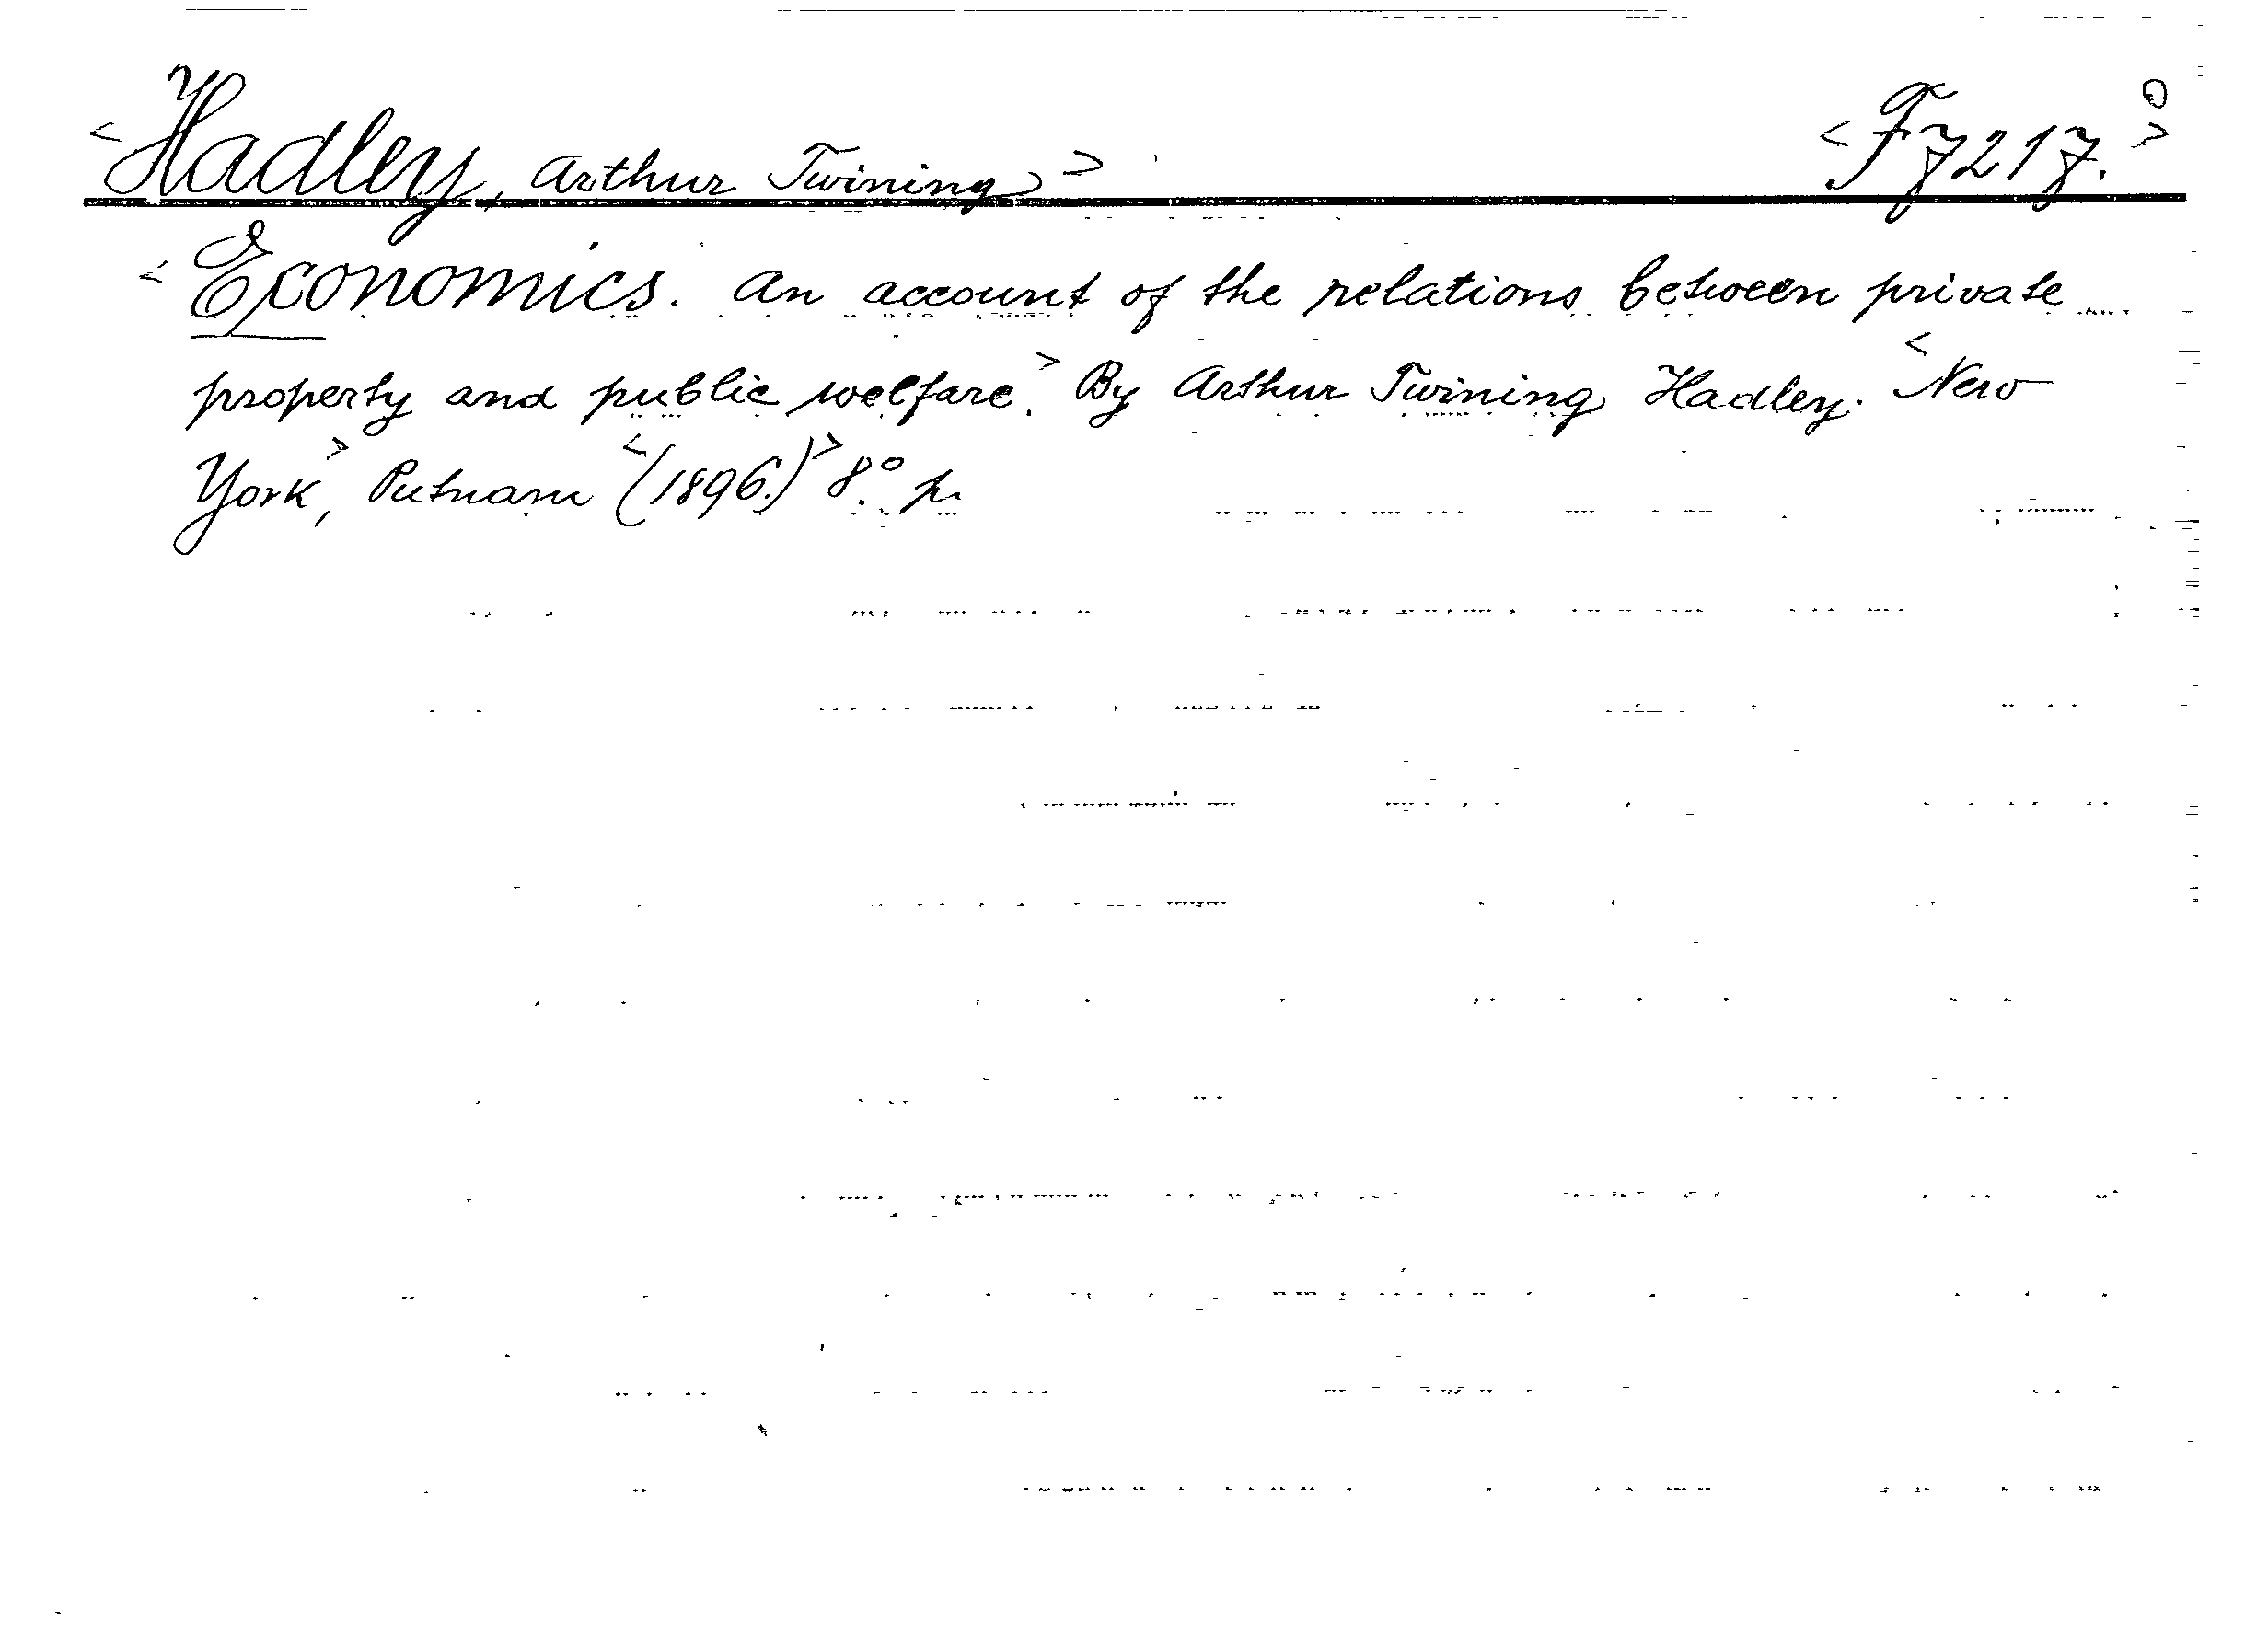 <Hadley, Arthur Twining> <F7217.>
<Economics. An account of the relations between private
property and public welfare.> By Arthur Twining Hadley. <New
York>, Putnam <(1896.)> 8° p.